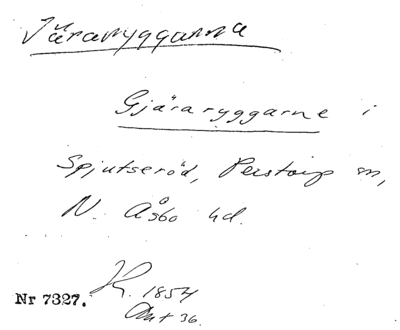 Järaryggarna
Gjäraryggarne i
Spjutseröd, Perstorp sn,
N. Åsbo hd.
Nr 7327. K. 1854
Ant 36.